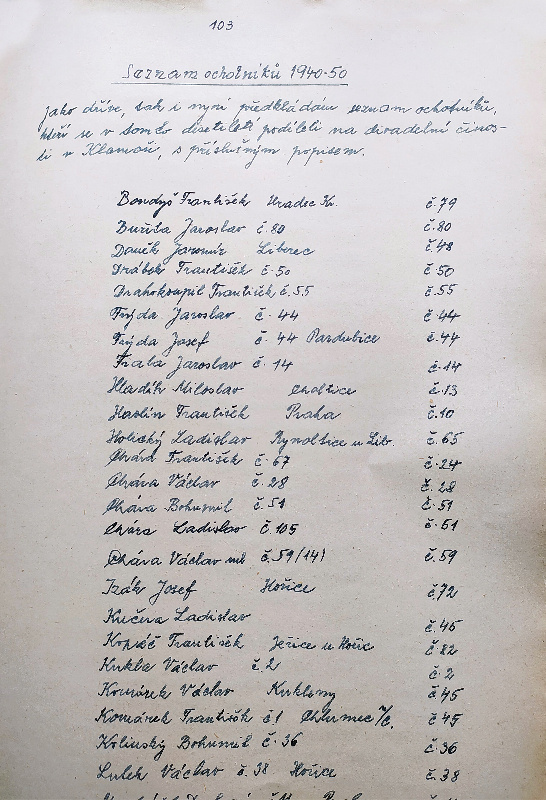 103
Seznam ochotníků 1940-50
Jako dříve, tak i nyní předkládám seznam ochotníků,
kteří se v tomto desetiletí podíleli na divadelní činos-
ti v Klamoši, s příslušným popisem.
Bondyš František Hradec Kr. č.79
Buřita Jaroslav č.80 č.80
Daněk Jaromír Liberec č.48
Drábek František č.50 č.50
Drahokoupil František č.55 č.55
Frýda Jaroslav č.44 č.44
Frýda Josef č.44 Pardubice č.44
Frala Jaroslav č.14 č.14
Hladík Miloslav Choltice č.13
Havlín František Praha č.10
Holický Ladislav Rynoltice u Litr. č.65
Chára František č.67 č.24
Chára Václav č.28 č.28
Chára Bohumil č.51 č.51
Chára Ladislav č.105 č.51
Chára Václav ml č.59/141 č.59
Izák Josef Hořice č.72
Kučera Ladislav č.45
Kopáč František Jeřice u Hořic č.82
Kukla Václav č.2 č.2
Komárek Václav Kukleny č.45
Komárek František č1 Chlumec n/c. č45
Kolínský Bohumil č.36 č.36
Lulek Václav č.38 Hořice č.38